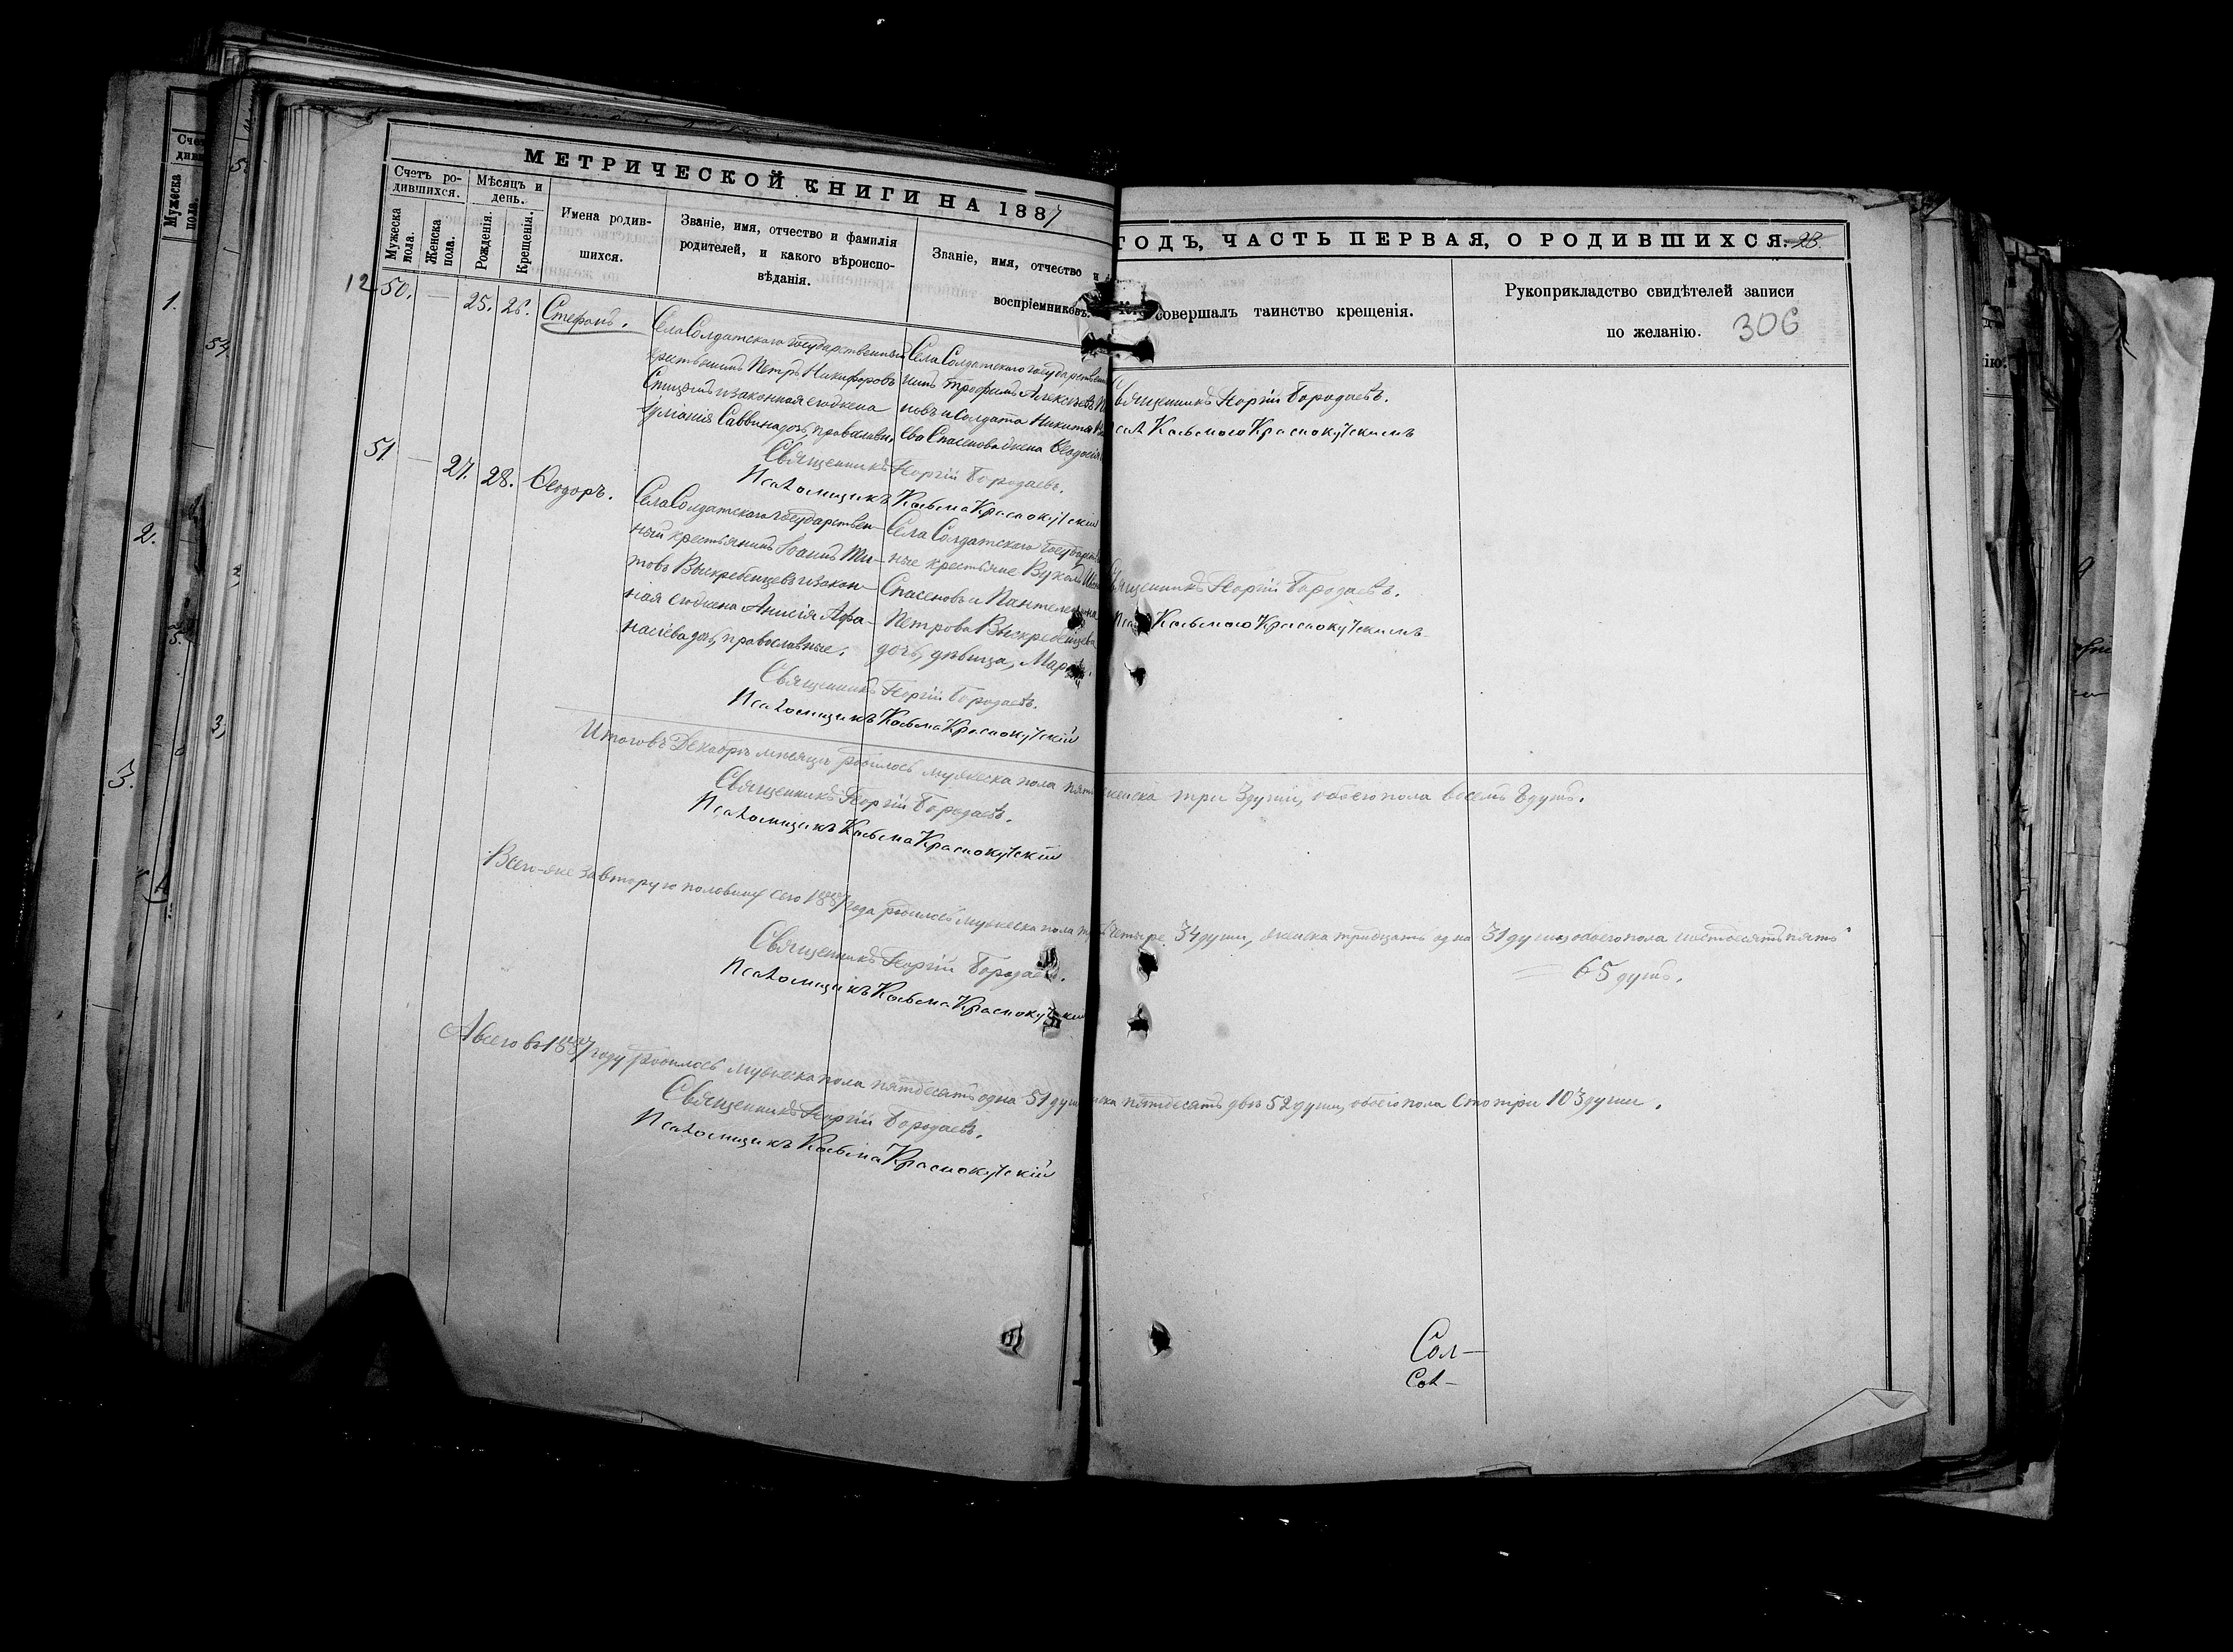 МЕТРИЧЕСКОЙ КНИГИ НА 1887
ГОДЪ, ЧАСТЬ ПЕРВАЯ, О РОДИВШИХСЯ. 23.
Счетъ ро-
дившихся.
Мужеска
пола.
Женска
пола.
Мѣсяцъ и
день.
Рожденія.
Крещенія.
Имена родив-
шихся.
Званіе, имя, отчество и фамилія
родителей, и какого вѣроиспо-
вѣданія.
Званіе, имя, отчество и
воспріемниковъ.
совершалъ таинство крещенія.
Рукоприкладство свидѣтелей записи
по желанію.
306
12
50.
—
25.
26.
Стефанъ.
Села Солдатскаго государственный
крестьянинъ Петръ Никифоровъ
и законная его жена
Саввина дочь, православн
Села Солдатскаго государственн
нинъ Трофимъ Алексѣевъ
новъ и солдата Никита
ева Спасенова жена Ѳеодосія
Священникъ Георгій Бородаевъ.
Псаломщикъ Косьма Краснокутскій
Священникъ Георгій Бородаевъ.
Псал Косьмою Краснокутскимъ
51
—
27.
28.
Ѳеодоръ.
Села Солдатскаго государствен-
ный крестьянинъ Іоаннъ Ти-
товъ Выскребенцевъ и закон-
ная его жена Анисія Афа-
насіева дочь, православные.
Села Солдатскаго государствен
ные крестьяне Вуколъ
Спасеновъ и Пантелеимона
Петрова Выскребенцева
дочь, дѣвица, Марія.
Священникъ Георгій Бородаевъ.
Псаломщикъ Косьма Краснокутскій
Священникъ Георгій Бородаевъ.
Псал Косьмою Краснокутскимъ
Итого въ Декабрѣ мѣсяцѣ родилось мужеска пола пять женска три 3 души, обоего пола восемь 8 душъ.
Священникъ Георгій Бородаевъ.
Псаломщикъ Косьма Краснокутскій
Всего-же за вторую половину сего 1887 года родилось мужеска пола четыре 34 души, женска тридцать одна 31 душа, обоего пола шестьдесятъ пять
65 душъ.
Священникъ Георгій Бородаевъ.
Псаломщикъ Косьма Краснокутскій
А всего въ 1887 году родилось мужеска пола пятьдесятъ одна 51 душ женска пятьдесятъ двѣ 52 души, обоего пола сто три 103 души.
Священникъ Георгій Бородаевъ.
Псаломщикъ Косьма Краснокутскій
Сол-
Сол-